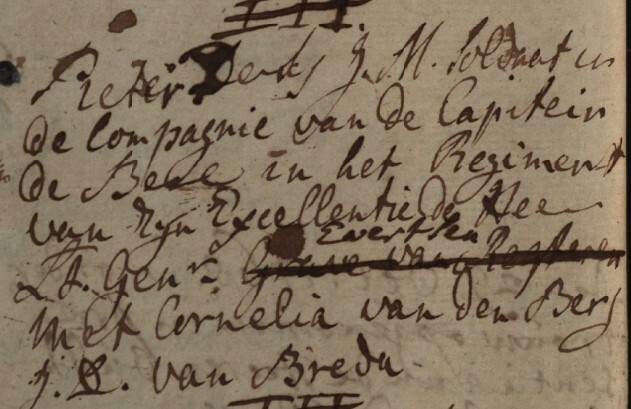 III.
Pieter Derks J. M. Soldaat in
de Compagnie van de Capitein
de Bere in het Regiment
van Zijn Excellentie de Heer
Evertsen
Lt. Genr. Grave van Regteren
met Cornelia van den Berg
j. D. van Breda
III